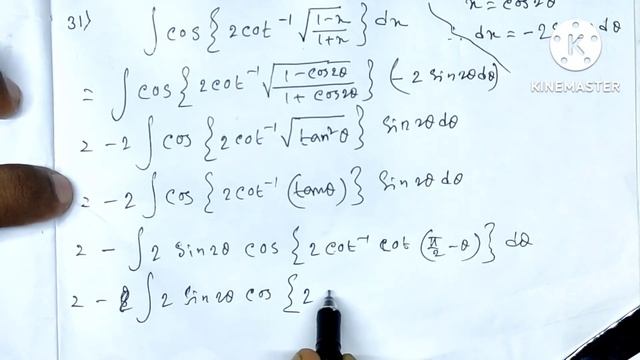 31) ∫ cos { 2 cot⁻¹ √((1-x)/(1+x)) } dx
x = cos2θ
∴ dx = -2 dθ
= ∫ cos { 2 cot⁻¹ √((1-cos2θ)/(1+cos2θ)) } (-2 sin2θ dθ)
= -2 ∫ cos { 2 cot⁻¹ √(tan²θ) } sin2θ dθ
= -2 ∫ cos { 2 cot⁻¹ (tanθ) } sin2θ dθ
= - ∫ 2 sin2θ cos { 2 cot⁻¹ cot (π/2 - θ) } dθ
= - ∫ 2 sin2θ cos { 2
KINEMASTER